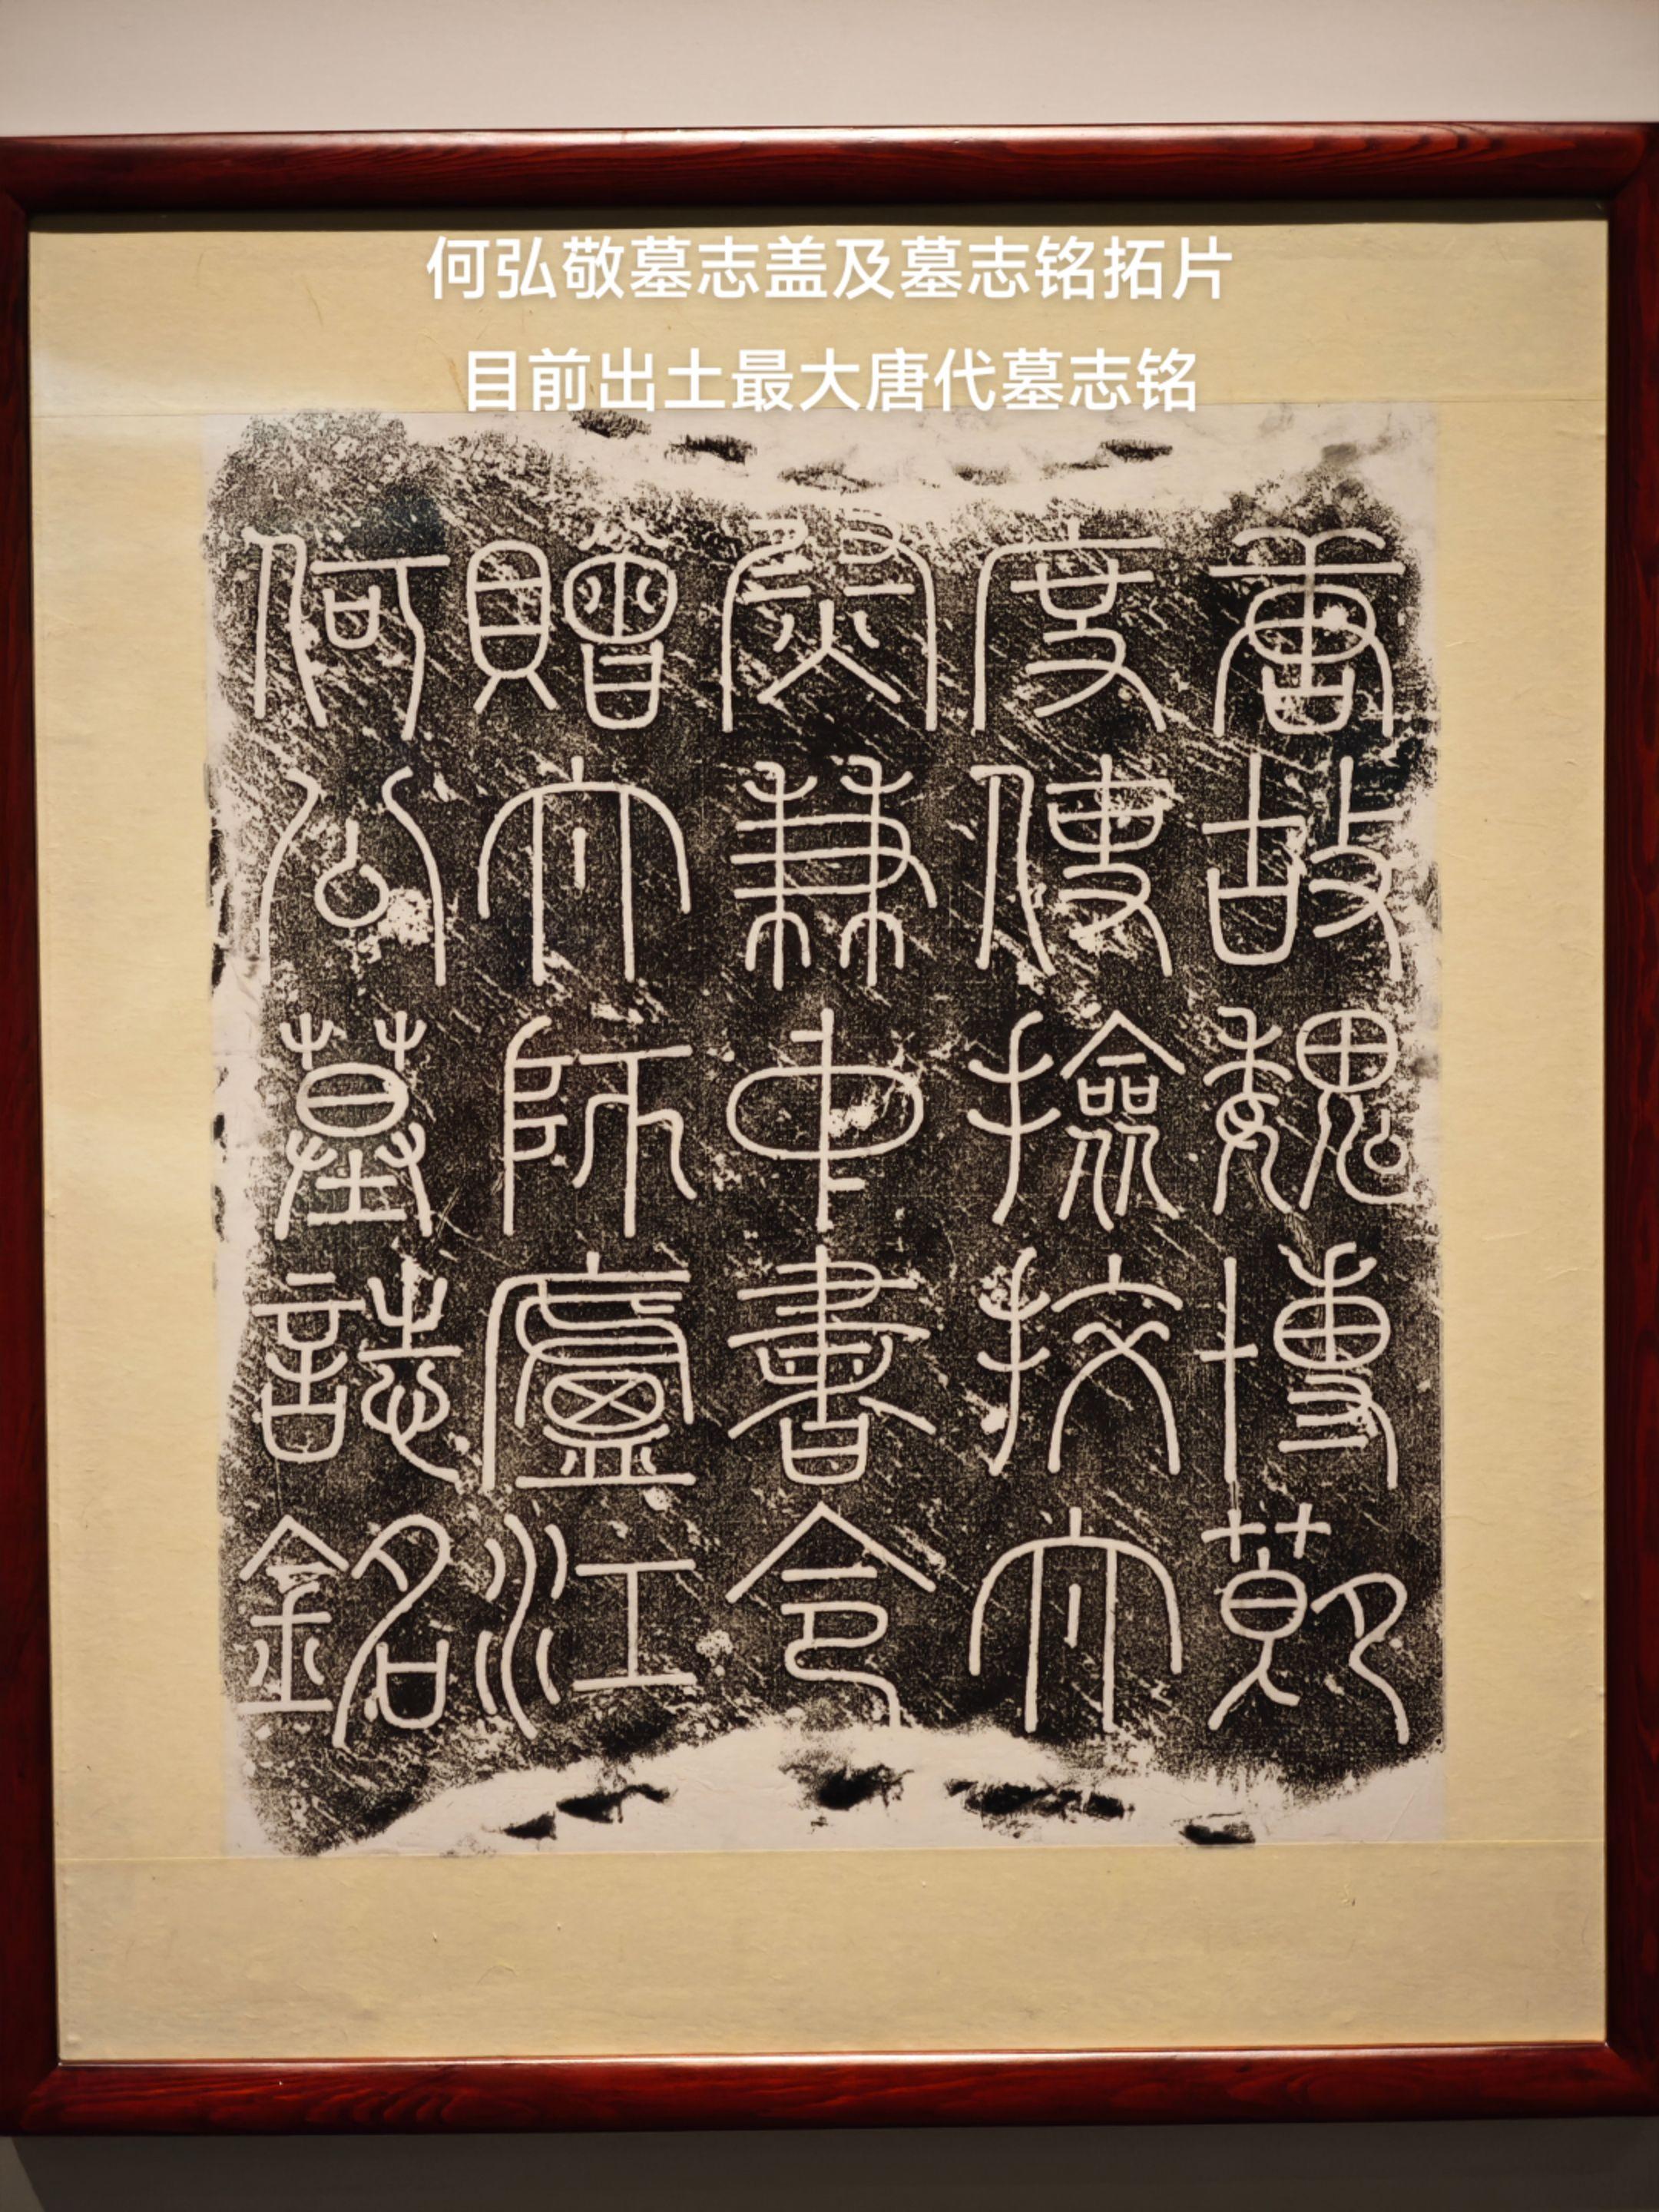 何弘敬墓志盖及墓志铭拓片
目前出土最大唐代墓志铭
唐故魏博節
度使檢挍太
尉兼中書令
贈太師廬江
何公墓誌銘